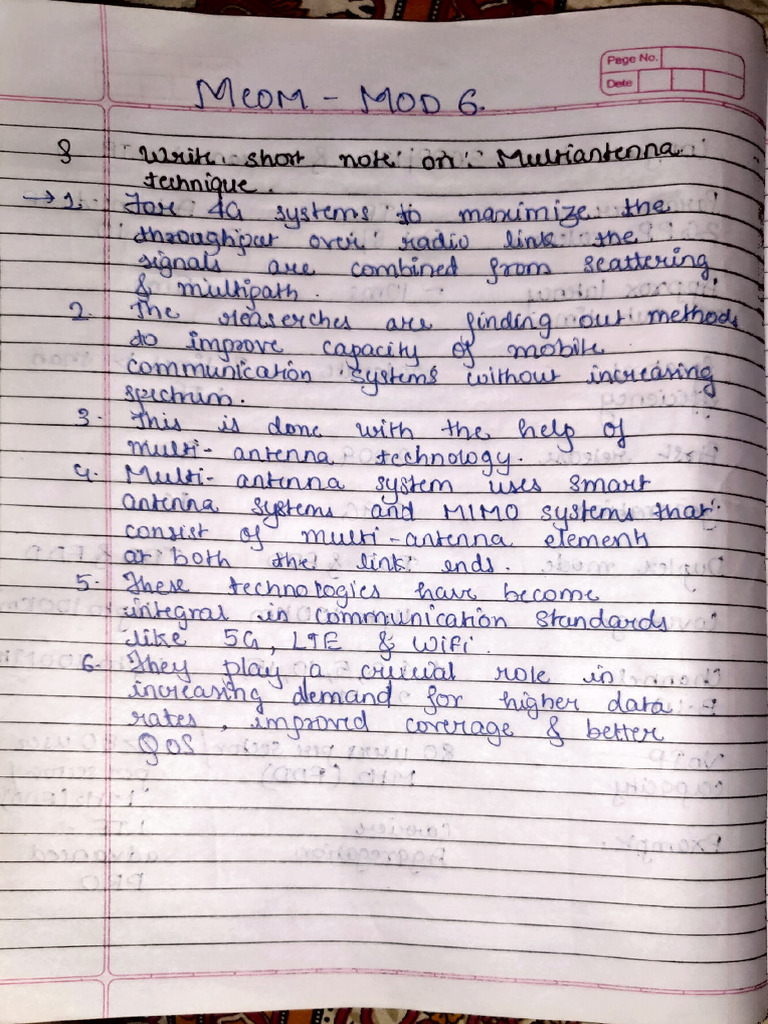 Page No.
Date
MCOM - MOD 6.
Q Write short note on Multiantenna
technique.
→ 1. For 4G systems to maximize the
throughput over radio link the
signals are combined from scattering
& multipath.
2. The reaserches are finding out methods
to improve capacity of mobile
communication systems without increasing
spectrum.
3. This is done with the help of
multi-antenna technology.
4. Multi-antenna system uses smart
antenna systems and MIMO systems that
consist of multi-antenna elements
at both the link ends.
5. These technologies have become
integral in communication standards
like 5G, LTE & WiFi.
6. They play a crucial role in
increasing demand for higher data
rates, improved coverage & better
QOS